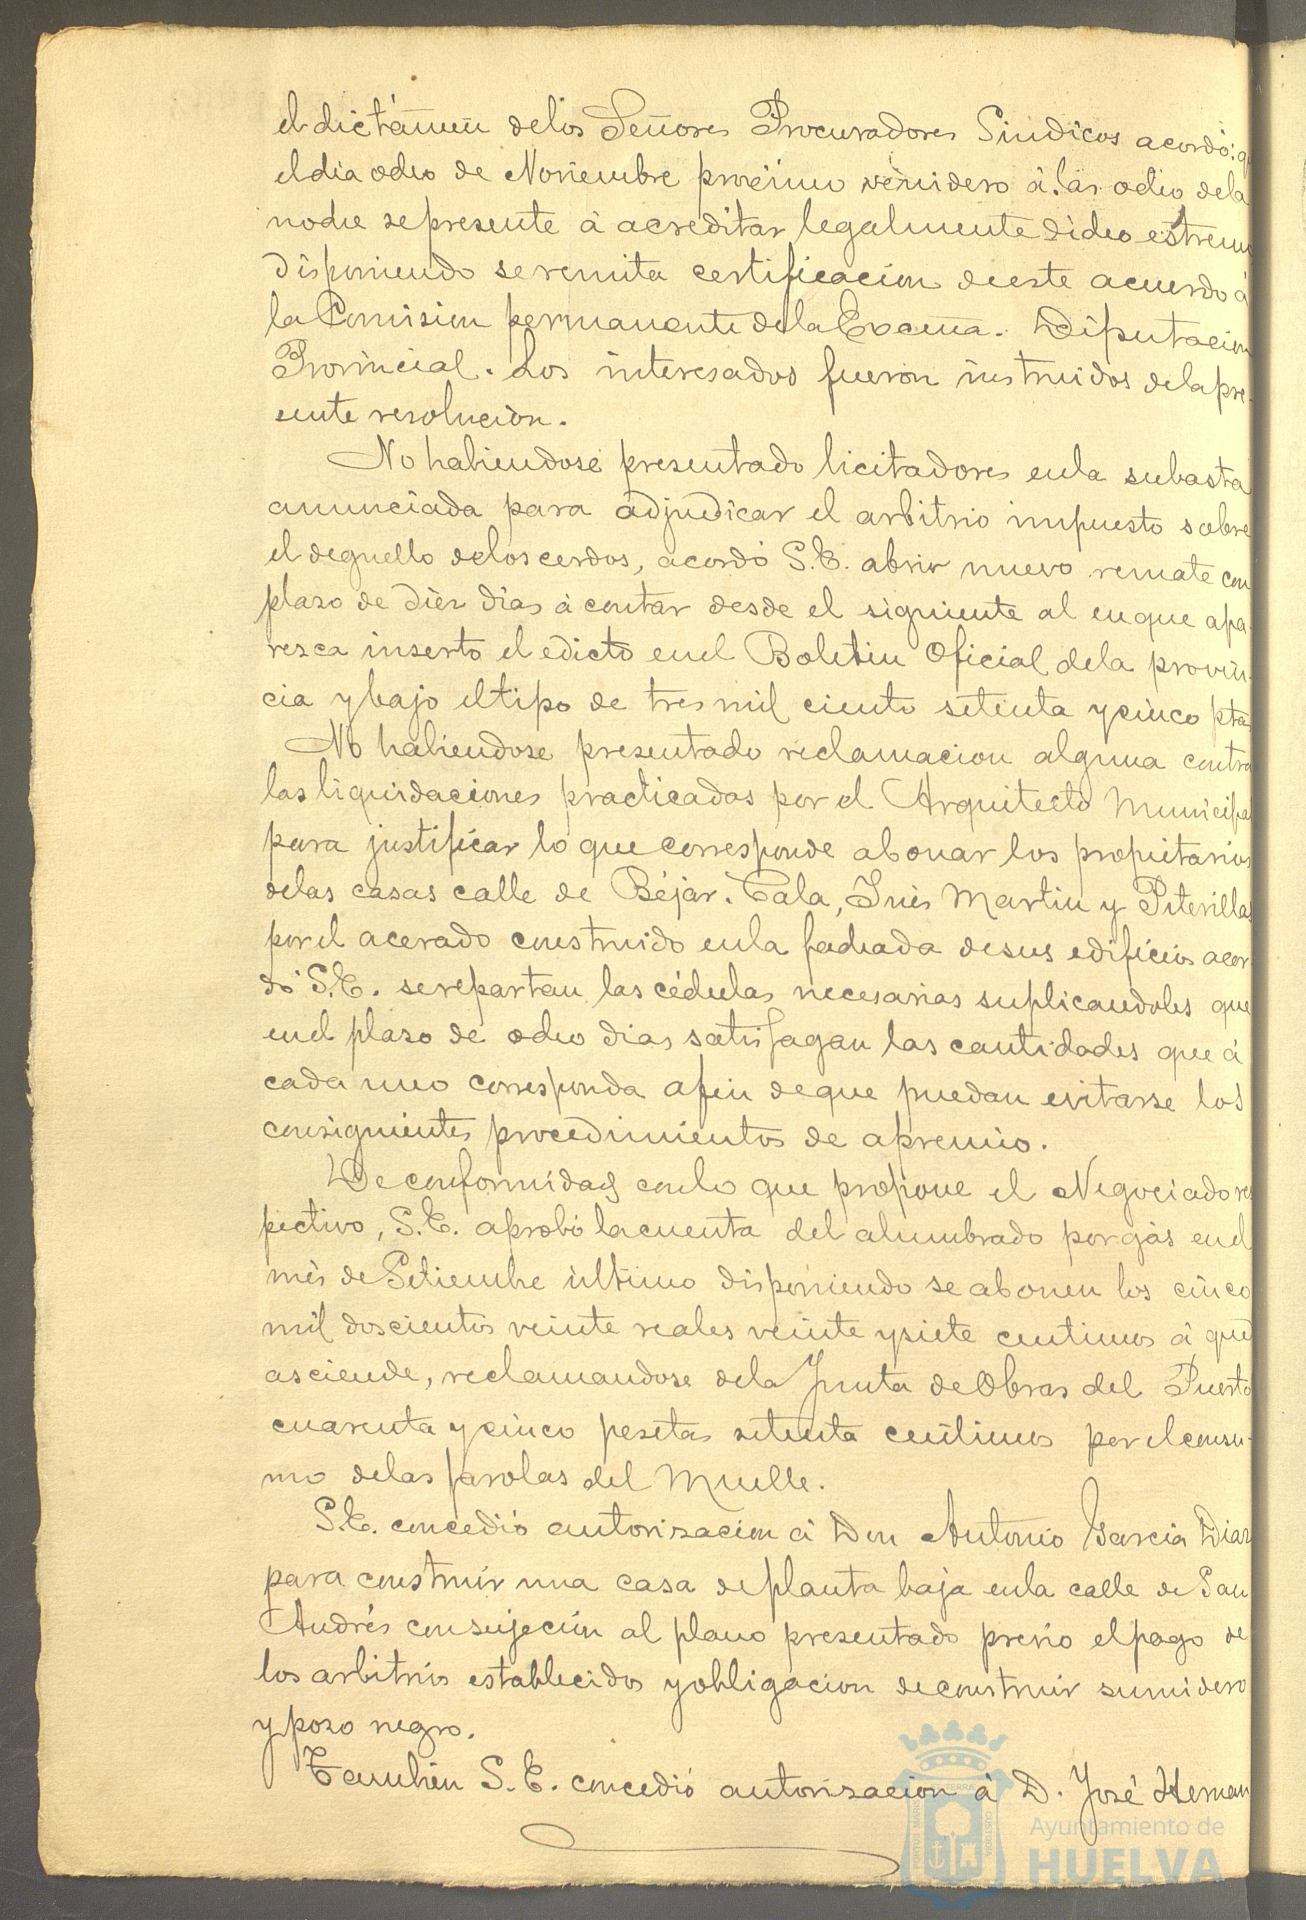 el dictámen delos Señores Procuradores Sindicos acordó: q
el dia ocho de Noviembre procsimo venidero á las ocho dela
noche sepresente á acreditar legalmente dicho estremo
disponiendo seremita certificacion deeste acuerdo á
la Comision permanente dela Excma. Diputacion
Provincial. Los interesados fueron instruidos delapre-
sente resolucion.
No habiendose presentado licitadores enla subasta
anunciada para adjudicar el arbitrio impuesto sobre
el deguello deloscerdos, acordó S.E. abrir nuevo remate con
plazo de diez dias á contar desde el siguiente al enque apa-
rezca inserto el edicto enel Boletin Oficial dela provin-
cia y bajo eltipo de tres mil ciento setenta ycinco ptas
No habiendose presentado reclamacion alguna contra
las liquidaciones practicadas por el Arquitecto Municipal
para justificar lo que corresponde abonar los propietarios
delas casas calle de Béjar. Cala, Inés Martin y Piterillas
porel acerado construido enla fachada desus edificios acor-
dó S.E. serepartan las cédulas necesarias suplicandoles que
enel plazo de ocho dias satisfagan las cantidades que á
cada uno corresponda afin deque puedan evitarse los
consiguientes procedimientos de apremio.
De conformidad conlo que propone el Negociado res
pectivo, S.E. aprobó lacuenta del alumbrado porgás enel
més de Setiembre último disponiendo se abonen los cinco
mil doscientos veinte reales veinte ysiete centimos á que
asciende, reclamandose dela Junta deObras del Puerto
cuarenta ycinco pesetas setenta centimos por elconsu-
mo delas farolas del Muelle.
S.E. concedió autorizacion á Don Antonio Garcia Diaz
para construir una casa deplanta baja enla calle de San
Andrés consujeción al plano presentado previo elpago de
los arbitrios establecidos yobligacion deconstruir sumidero
y pozo negro.
Tambien S.E. concedió autorizacion á D. José Hernan
Ayuntamiento de
HUELVA